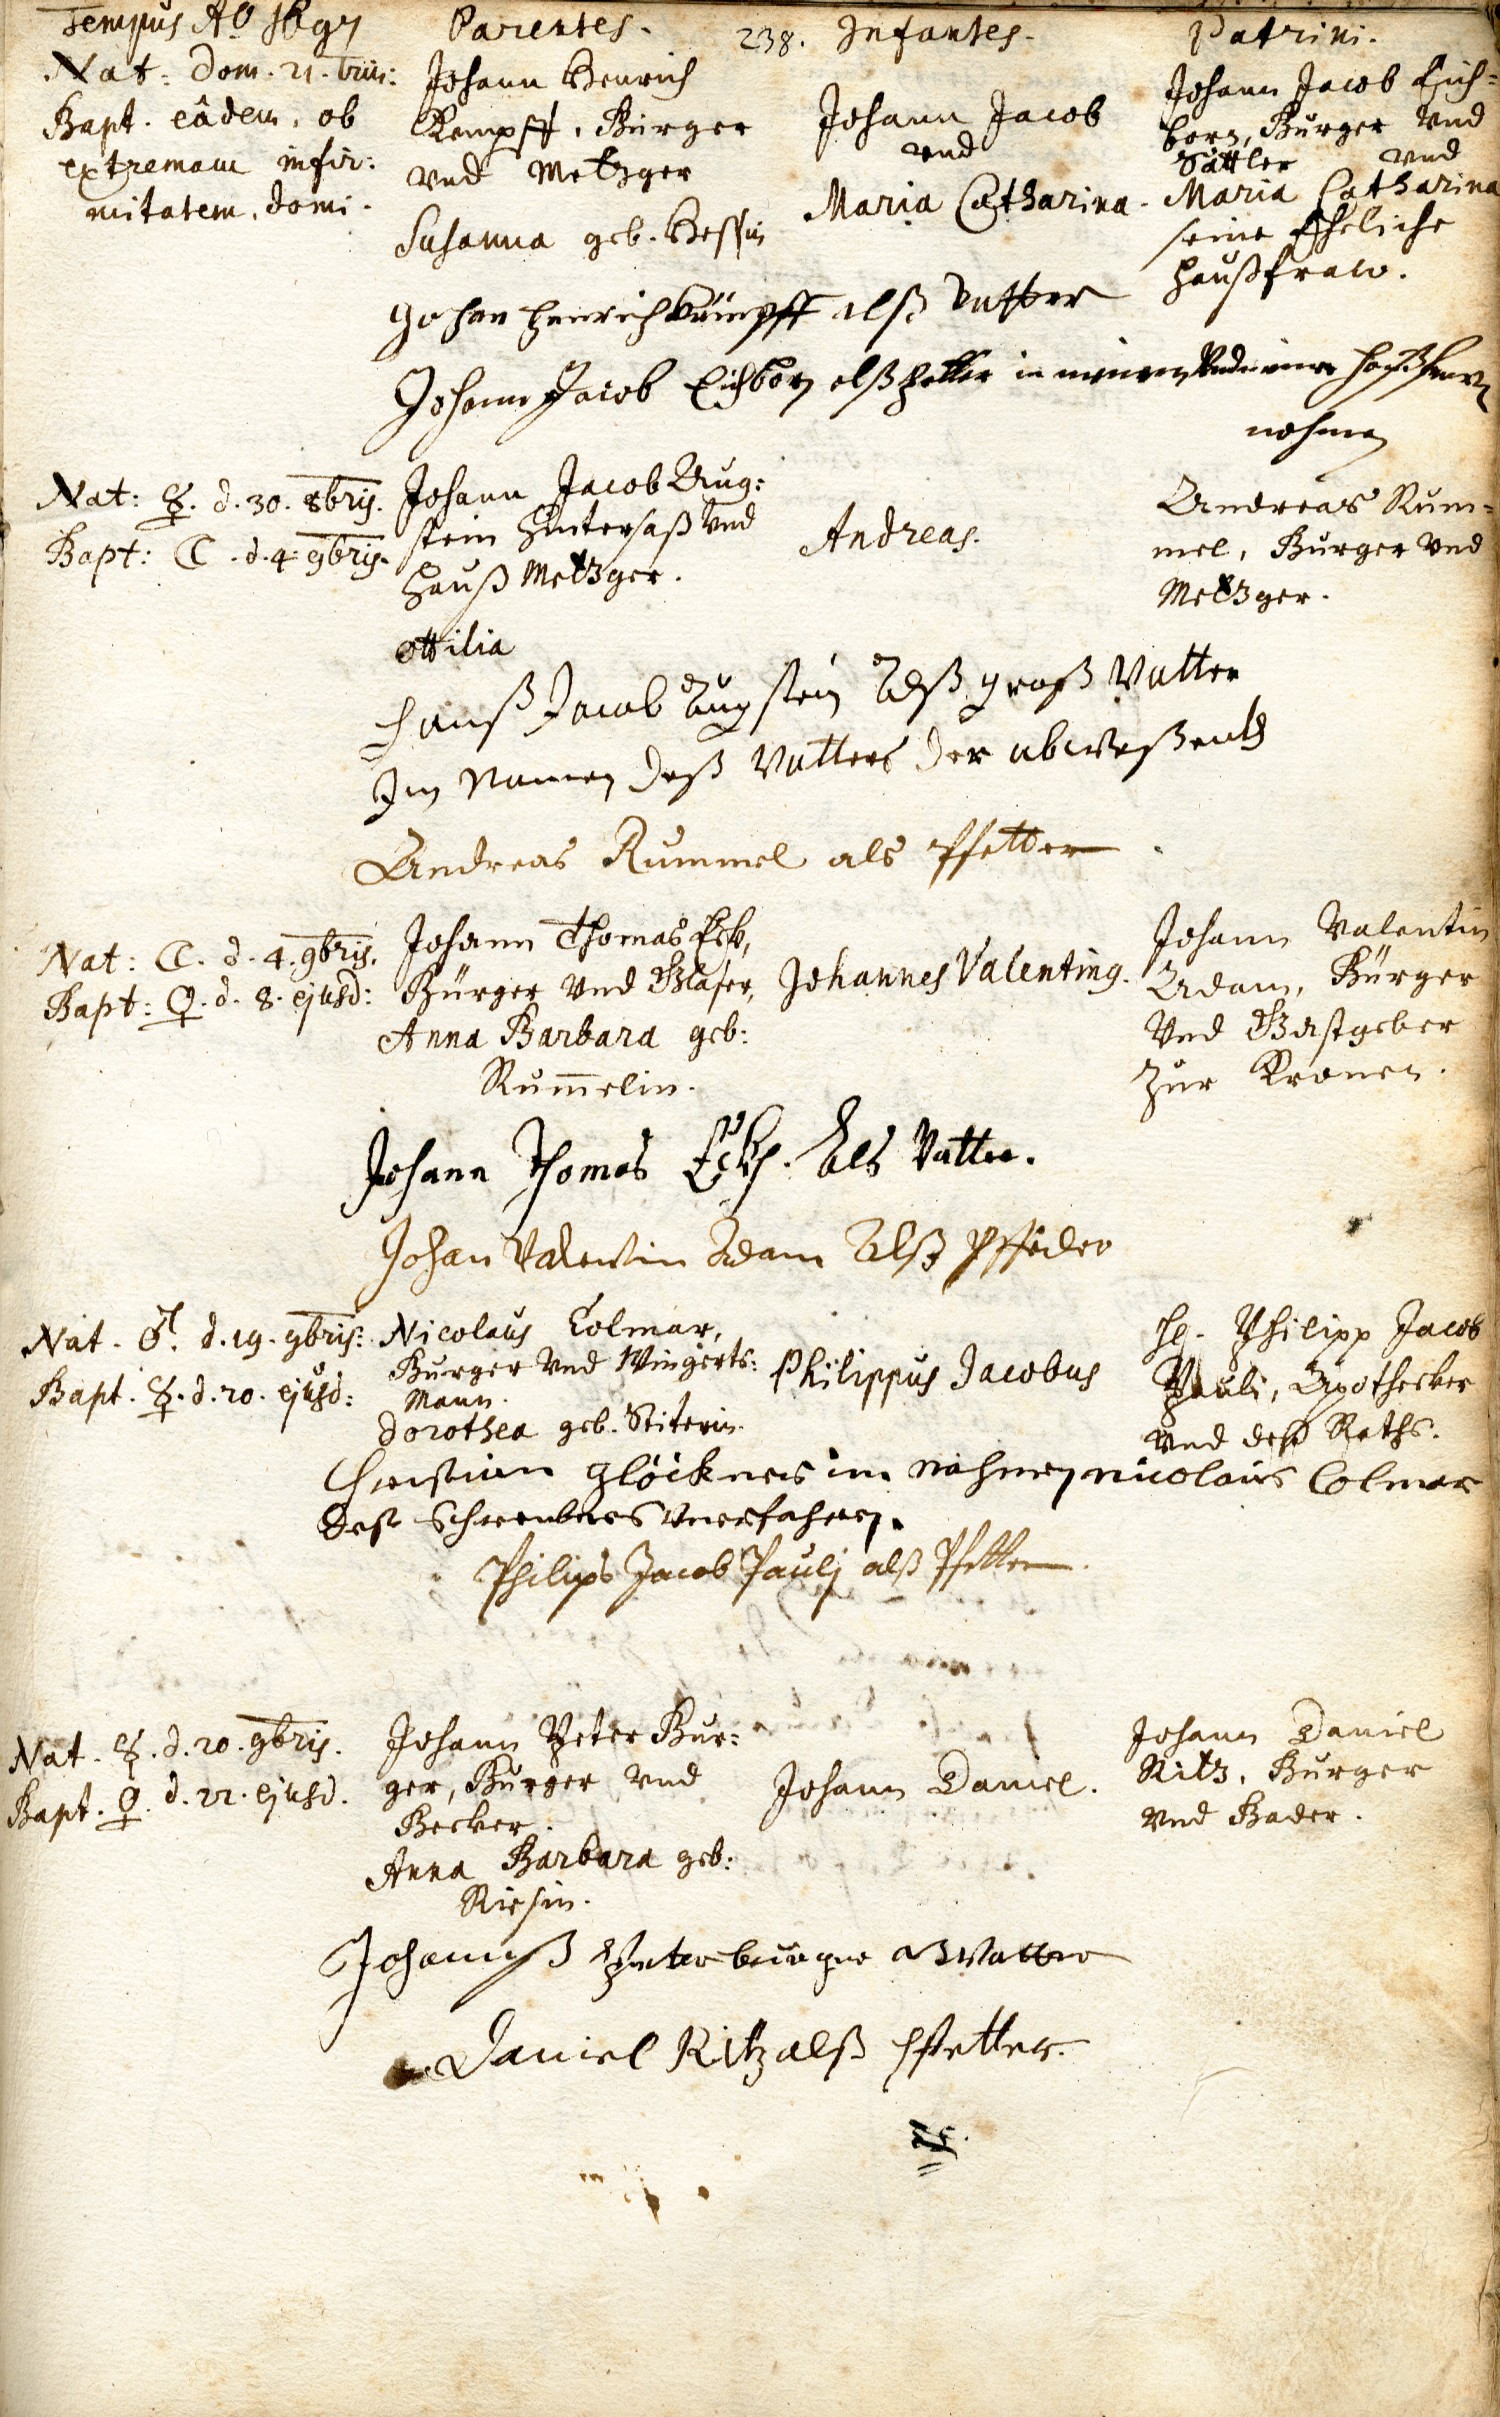 Tempus Aō 1697 Parentes. 238. Infantes. Patrini.
Nat: Dom. 21. trin:
Bapt. eâdem, ob
extremam infir:
mitatem, domi.
Johann Henrich
Kempff, Burger
vnd Metzger
Susanna geb. Hessin
Johann Jacob
vnd
Maria Catharina.
Johann Jacob Eich=
born, Burger vnd
Sattler vnd
Maria Catharina
seine Eheliche
Haußfraw.
Johan Henrich Kümpff alß Vatter
Johann Jacob Eichborn alß Petter in meinem Vnd meiner Haußfrawen
nahmen
Nat: ☿. d. 30. 8bris.
Bapt: ☾. d. 4. 9bris.
Johann Jacob Aug:
stein Hintersaß Vnd
Hauß Metzger.
Ottilia
Andreas.
Andreas Rum=
mel, Burger Vnd
Metzger.
Hanß Jacob Augstein Alß groß Vatter
Im Namen deß Vatters der abweßent
Andreas Rummel als Pfetter
Nat: ☾. d. 4. 9bris.
Bapt: ♀. d. 8. ejusd:
Johann Thomas Eck,
Bürger Vnd Glaser,
Anna Barbara geb:
Rum̄elin.
Johannes Valenting.
Johann Valentin
Adam, Bürger
Vnd Gastgeber
Zur Kronen.
Johann Thomas Eckh. Als Vatter.
Johan Valentin Adam Alß Pfeder
Nat. ♂. d. 19. 9bris:
Bapt. ☿. d. 20. ejusd:
Nicolaus Colmar,
Burger Vnd Wingerts:
Mann.
Dorothea geb. Stiterin.
Philippus Jacobus
H. Philipp Jacob
Pauli, Apothecker
vnd deß Raths.
Christian Glöckner im nahmen nicolaus Colmar
deß Schreibens Vnerfahren.
Philips Jacob Paulj alß Pfetter.
Nat. ☿. d. 20. 9bris.
Bapt. ♀. d. 22. ejusd.
Johann Peter Bur:
ger, Burger vnd
Becker.
Anna Barbara geb:
Riesin.
Johann Daniel.
Johann Daniel
Ritz, Burger
vnd Bader.
Johanneß Peter burger alß Vatter
Daniel Ritz alß Pfetter.